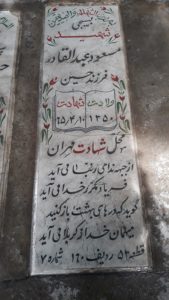 شهید
بسیجی
مسعود عبدالقادر
فرزند حسین
ولادت شهادت
۱۳۵۰ ۶۵/۴/۱۰
محل شهادت مهران
از جبهه ندای ربنا می آید
فریاد مکرر خدا می آید
گوید که درهای بهشت باز کنید
مهمان خدا ز کربلا می آید
قطعه ۵۳ ردیف ۱۶۰ شماره ۷